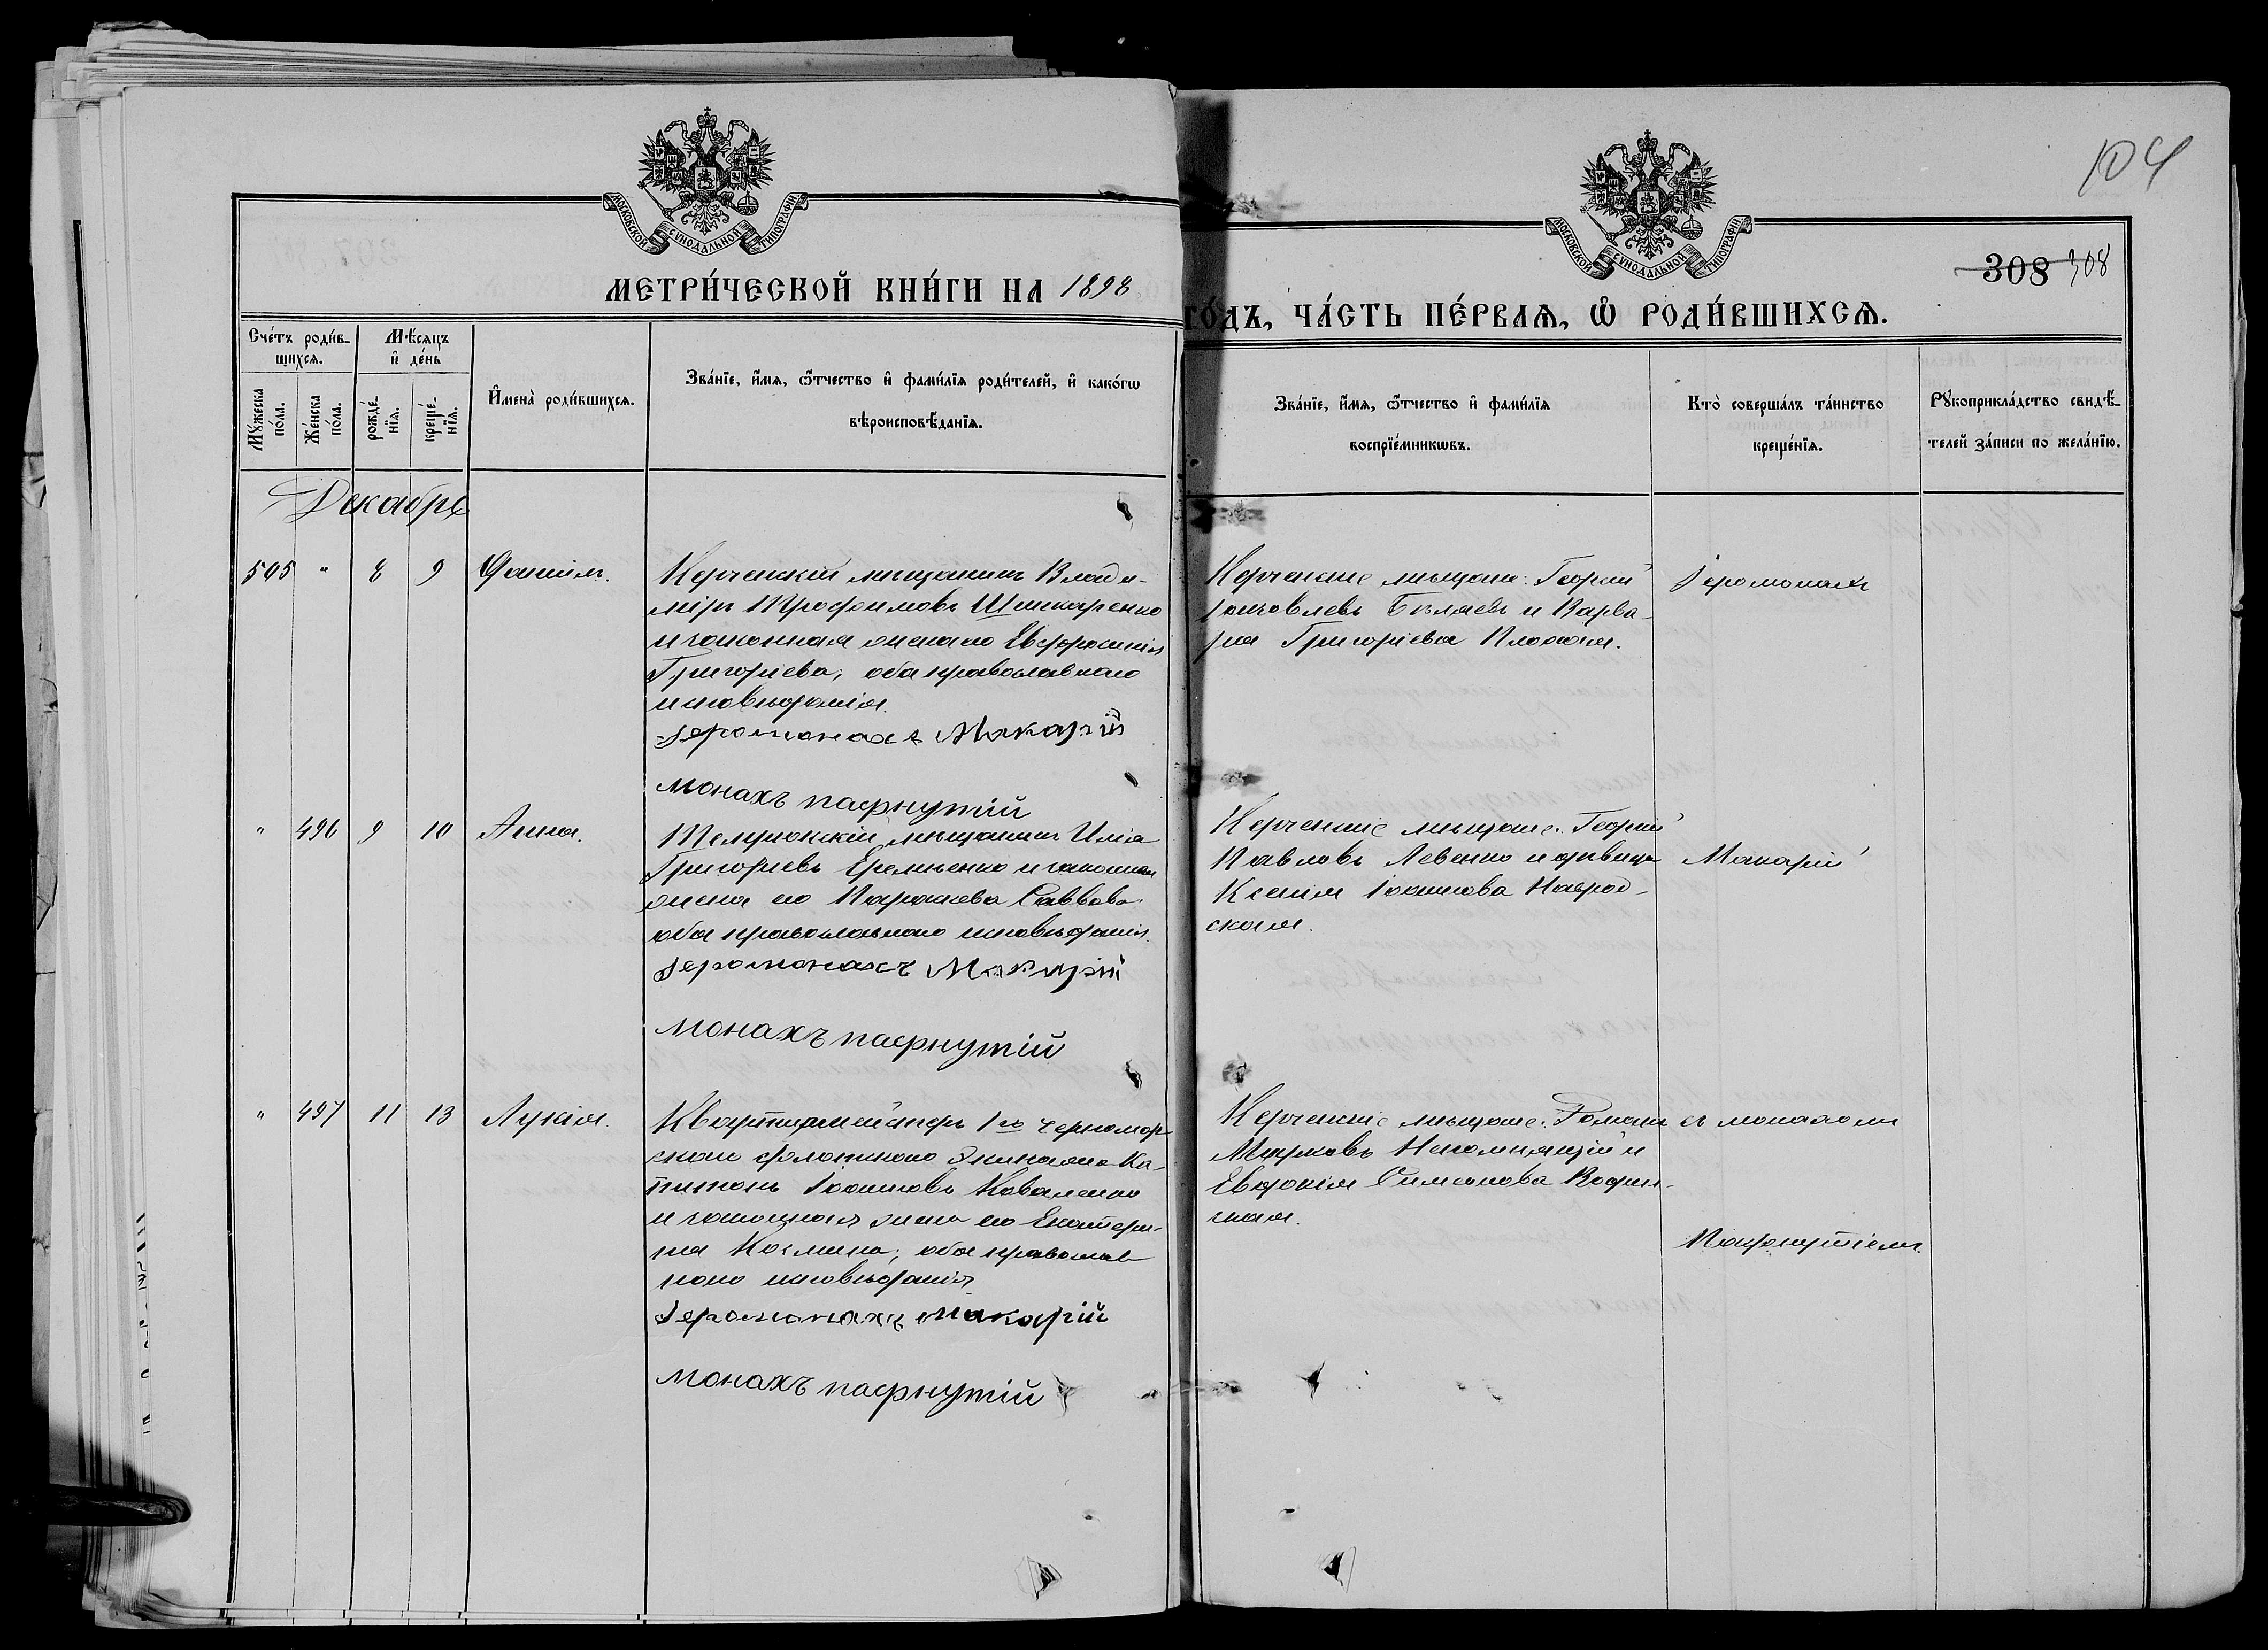 104
МОСКОВСКОЙ СУНОДАЛЬНОЙ ТИПОГРАФІИ
МОСКОВСКОЙ СУНОДАЛЬНОЙ ТИПОГРАФІИ
308 308
МЕТРИ́ЧЕСКОЙ КНИ́ГИ НА 1898
ГО́ДЪ, ЧА́СТЬ ПЕ́РВАѦ, Ѽ РОДИ́ВШИХСѦ.
Сче́тъ роди́в-
щихсѧ.
Мѣ́сѧцъ
и҆ де́нь
Мꙋ́жеска
по́ла.
Же́нска
по́ла.
рожде́-
нїѧ.
креще́-
нїѧ.
И҆мена̀ роди́вшихсѧ.
Зва́нїе, и҆́мѧ, ѻ҆́тчество и҆ фами́лїѧ роди́телей, и҆ како́гѡ
вѣроисповѣ́данїѧ.
Зва́нїе, и҆́мѧ, ѻ҆́тчество и҆ фами́лїѧ
воспрїе́мникѡвъ.
Кто̀ соверша́лъ та́инство
креще́нїѧ.
Рꙋкоприкла́дство свидѣ́-
телей за́писи по жела́нїю.
Декабрь
505 " 8 9
Керченскій мѣщанинъ Влади-
міръ Трофимовъ Шинкаренко
и законная жена его Евфросинія
Григоріева, оба православнаго
исповѣданія.
Іеромонахъ Макарій
монахъ пафнутій
Керченскіе мѣщане: Георгій
Яковлевъ Бѣляевъ и Варва-
ра Григоріева Плохая.
Іеромонахъ
" 496 9 10 Анна.
Темрюкскій мѣщанинъ Илія
Григорьевъ Еременко и законная
жена его Параскева Саввова
оба православнаго исповѣданія.
Іеромонахъ Макарій
монахъ пафнутій
Керченскіе мѣщане: Георгій
Павловъ Левенко и дѣвица
Ксенія Іоаннова Наврод-
ская.
Макарій
" 497 11 13 Лукія.
Квартирмейстеръ 1го Черномор-
скаго флотскаго Экипажа Ка-
питонъ Іоанновъ Коваленко
и законная жена его Екатери-
на Космина, оба православ-
наго исповѣданія
Іеромонахъ Макарій
монахъ пафнутій
Керченскіе мѣщане: Романъ
Марковъ Непомнящій и
Евдокія Симонова
ская.
съ монахомъ
Пафнутіемъ.